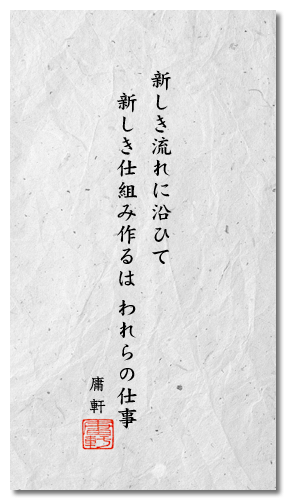 新しき流れに沿ひて
新しき仕組み作るは われらの仕事
庸軒